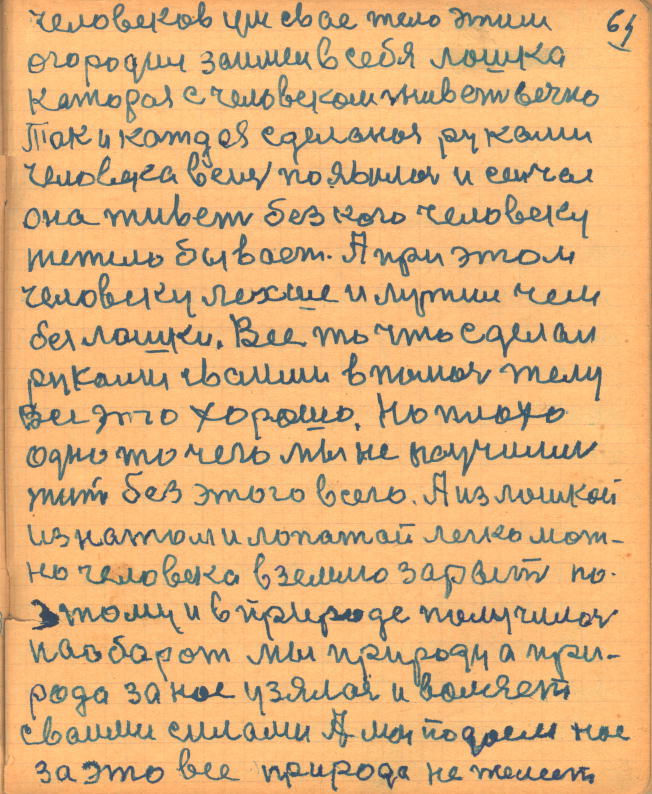 64
человеков ум свае тело этим
огородил заимел в себя лошка
каторая с человеком живет вечно
Так и каждая сделаная руками
человека вещ появилас и сичас
она живет без кого человеку
тежело бывает. А при этом
человеку лехше и лутши чем
без лошки. Все то что сделал
руками сваими в помощ телу
все это хорошо. Но плохо
одно то чего мы не научилис
жит без этого всего. А из лошкой
из натом и лопатай легко мож-
но человека в землю зарыт по-
этому и в природе получилос
наоборот мы природу а при-
рода за нас узялас и воюет
сваими силами А мы подаем нас
за это все природа не жилеет